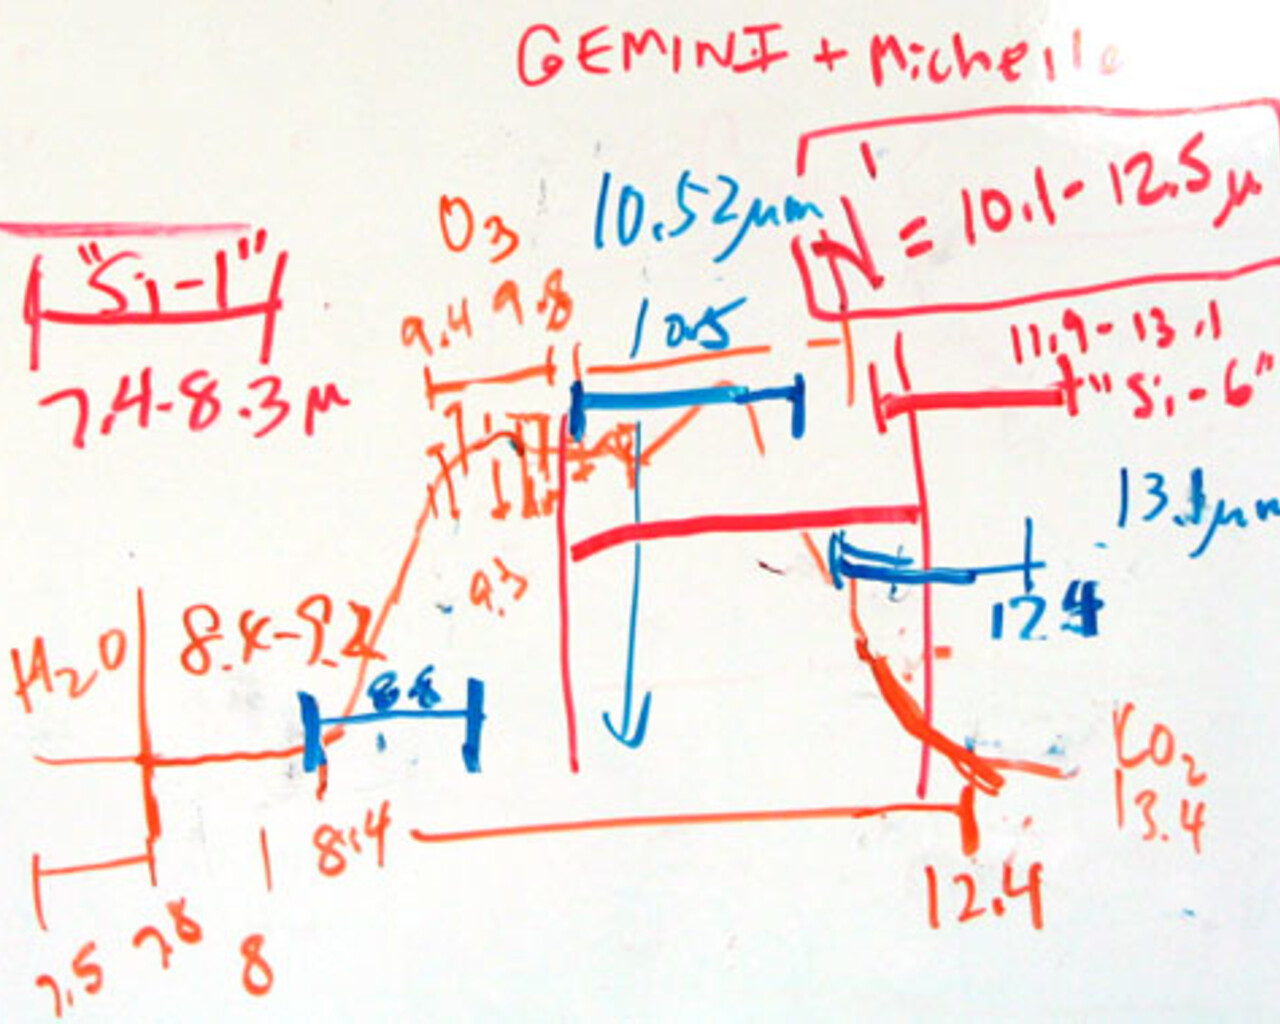 GEMINI + Michelle
N' = 10.1-12.5μ
10.52μm
O3
"Si-1"
7.4-8.3μ
9.4 9.8
10.5
11.9-13.1
"Si-6"
13.1μm
9.3
12.4
H2O
8.4-9.2
8.8
CO2
13.4
8.4
12.4
7.5 7.8 8